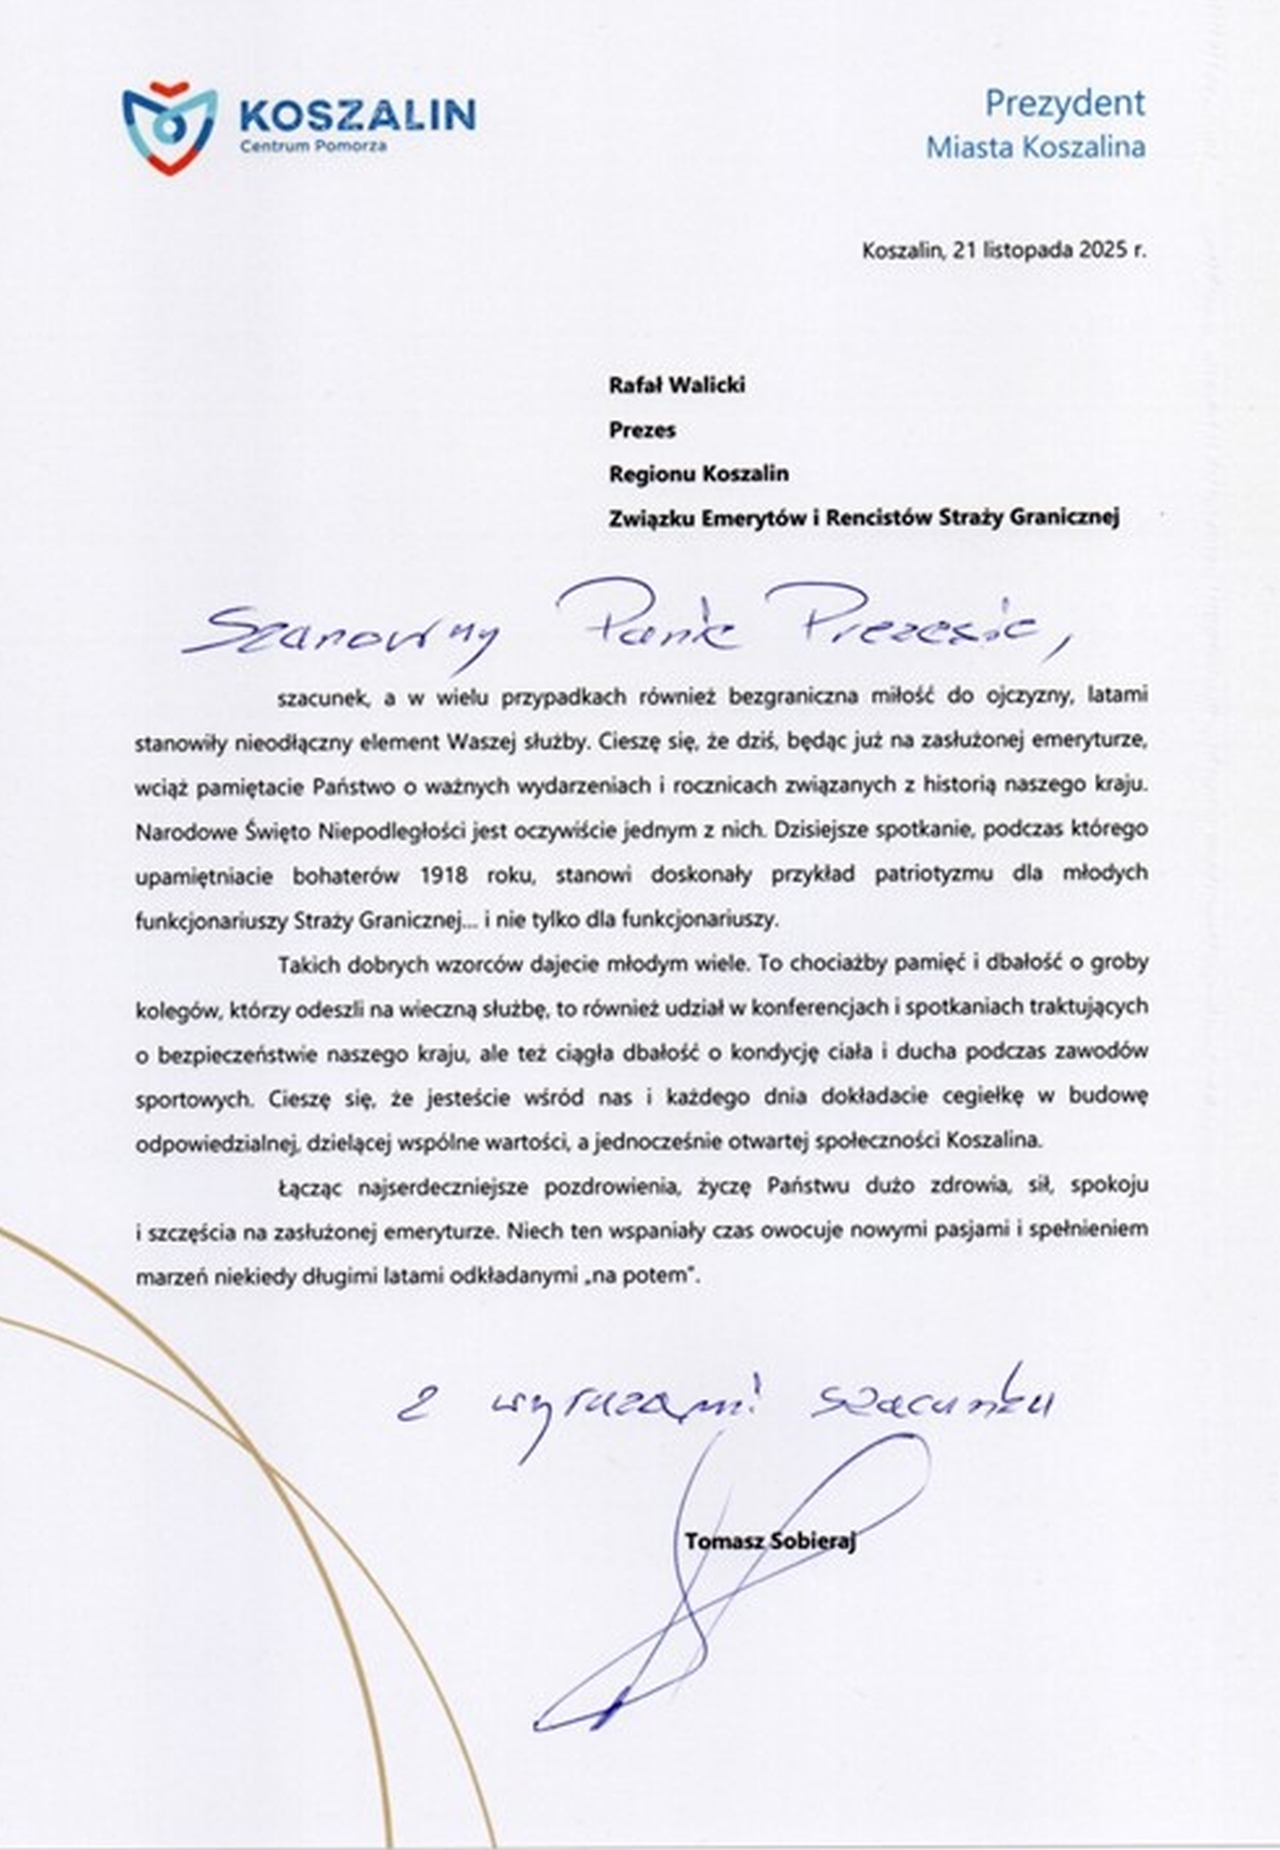 KOSZALIN
Centrum Pomorza
Prezydent
Miasta Koszalina
Koszalin, 21 listopada 2025 r.
Rafał Walicki
Prezes
Regionu Koszalin
Związku Emerytów i Rencistów Straży Granicznej
Szanowny Panie Prezesie,
szacunek, a w wielu przypadkach również bezgraniczna miłość do ojczyzny, latami
stanowiły nieodłączny element Waszej służby. Cieszę się, że dziś, będąc już na zasłużonej emeryturze,
wciąż pamiętacie Państwo o ważnych wydarzeniach i rocznicach związanych z historią naszego kraju.
Narodowe Święto Niepodległości jest oczywiście jednym z nich. Dzisiejsze spotkanie, podczas którego
upamiętniacie bohaterów 1918 roku, stanowi doskonały przykład patriotyzmu dla młodych
funkcjonariuszy Straży Granicznej... i nie tylko dla funkcjonariuszy.
Takich dobrych wzorców dajecie młodym wiele. To chociażby pamięć i dbałość o groby
kolegów, którzy odeszli na wieczną służbę, to również udział w konferencjach i spotkaniach traktujących
o bezpieczeństwie naszego kraju, ale też ciągła dbałość o kondycję ciała i ducha podczas zawodów
sportowych. Cieszę się, że jesteście wśród nas i każdego dnia dokładacie cegiełkę w budowę
odpowiedzialnej, dzielącej wspólne wartości, a jednocześnie otwartej społeczności Koszalina.
Łącząc najserdeczniejsze pozdrowienia, życzę Państwu dużo zdrowia, sił, spokoju
i szczęścia na zasłużonej emeryturze. Niech ten wspaniały czas owocuje nowymi pasjami i spełnieniem
marzeń niekiedy długimi latami odkładanymi „na potem”.
z wyrazami szacunku
Tomasz Sobieraj